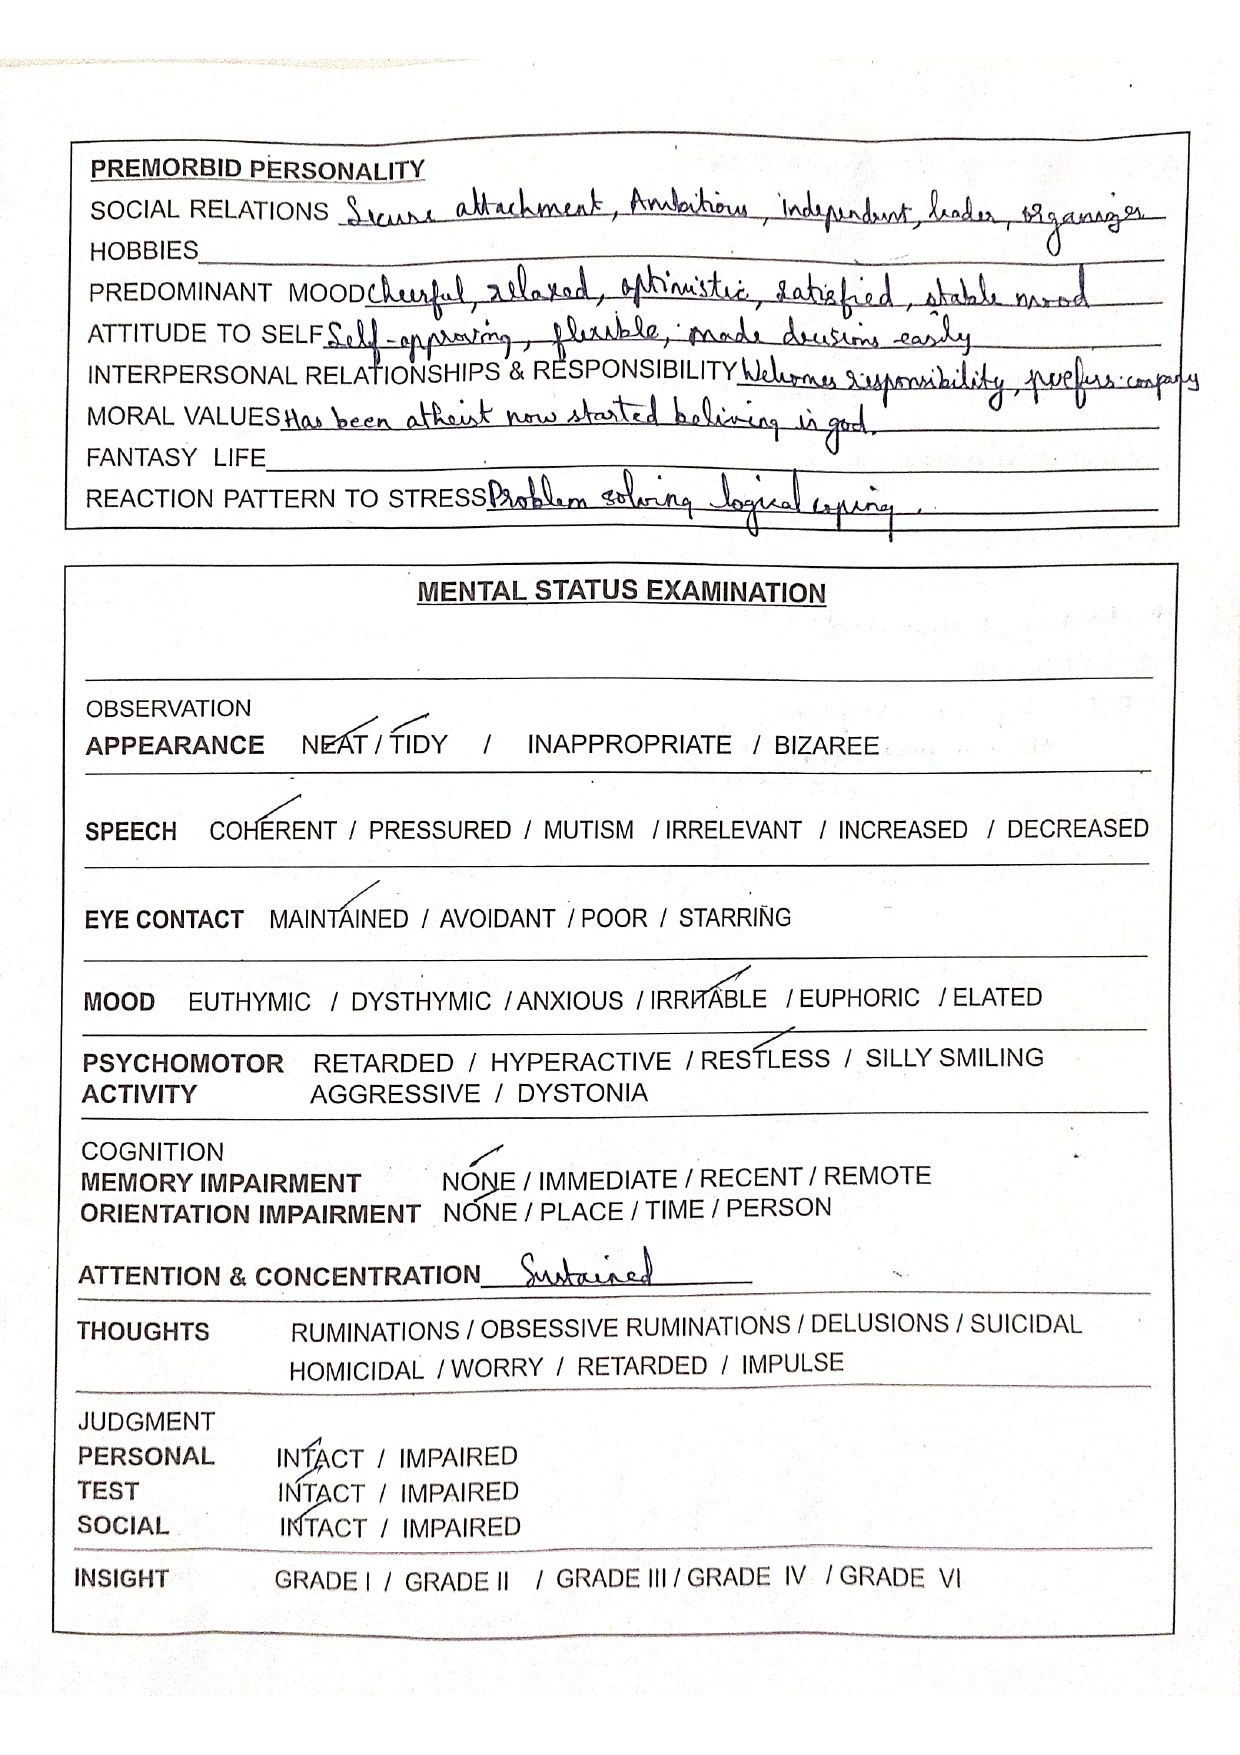 PREMORBID PERSONALITY
SOCIAL RELATIONS Secure attachment, Ambitious, independent, leader, organizer
HOBBIES
PREDOMINANT MOOD Cheerful, relaxed, optimistic, satisfied, stable mood
ATTITUDE TO SELF Self-approving, flexible, made decisions easily
INTERPERSONAL RELATIONSHIPS & RESPONSIBILITY Welcomes responsibility, prefers company
MORAL VALUES Has been atheist now started beliving in god.
FANTASY LIFE
REACTION PATTERN TO STRESS Problem solving logical coping.
MENTAL STATUS EXAMINATION
OBSERVATION
APPEARANCE NEAT / TIDY / INAPPROPRIATE / BIZAREE
SPEECH COHERENT / PRESSURED / MUTISM / IRRELEVANT / INCREASED / DECREASED
EYE CONTACT MAINTAINED / AVOIDANT / POOR / STARRING
MOOD EUTHYMIC / DYSTHYMIC / ANXIOUS / IRRITABLE / EUPHORIC / ELATED
PSYCHOMOTOR RETARDED / HYPERACTIVE / RESTLESS / SILLY SMILING
ACTIVITY AGGRESSIVE / DYSTONIA
COGNITION
MEMORY IMPAIRMENT NONE / IMMEDIATE / RECENT / REMOTE
ORIENTATION IMPAIRMENT NONE / PLACE / TIME / PERSON
ATTENTION & CONCENTRATION Sustained
THOUGHTS RUMINATIONS / OBSESSIVE RUMINATIONS / DELUSIONS / SUICIDAL
HOMICIDAL / WORRY / RETARDED / IMPULSE
JUDGMENT
PERSONAL INTACT / IMPAIRED
TEST INTACT / IMPAIRED
SOCIAL INTACT / IMPAIRED
INSIGHT GRADE I / GRADE II / GRADE III / GRADE IV / GRADE VI